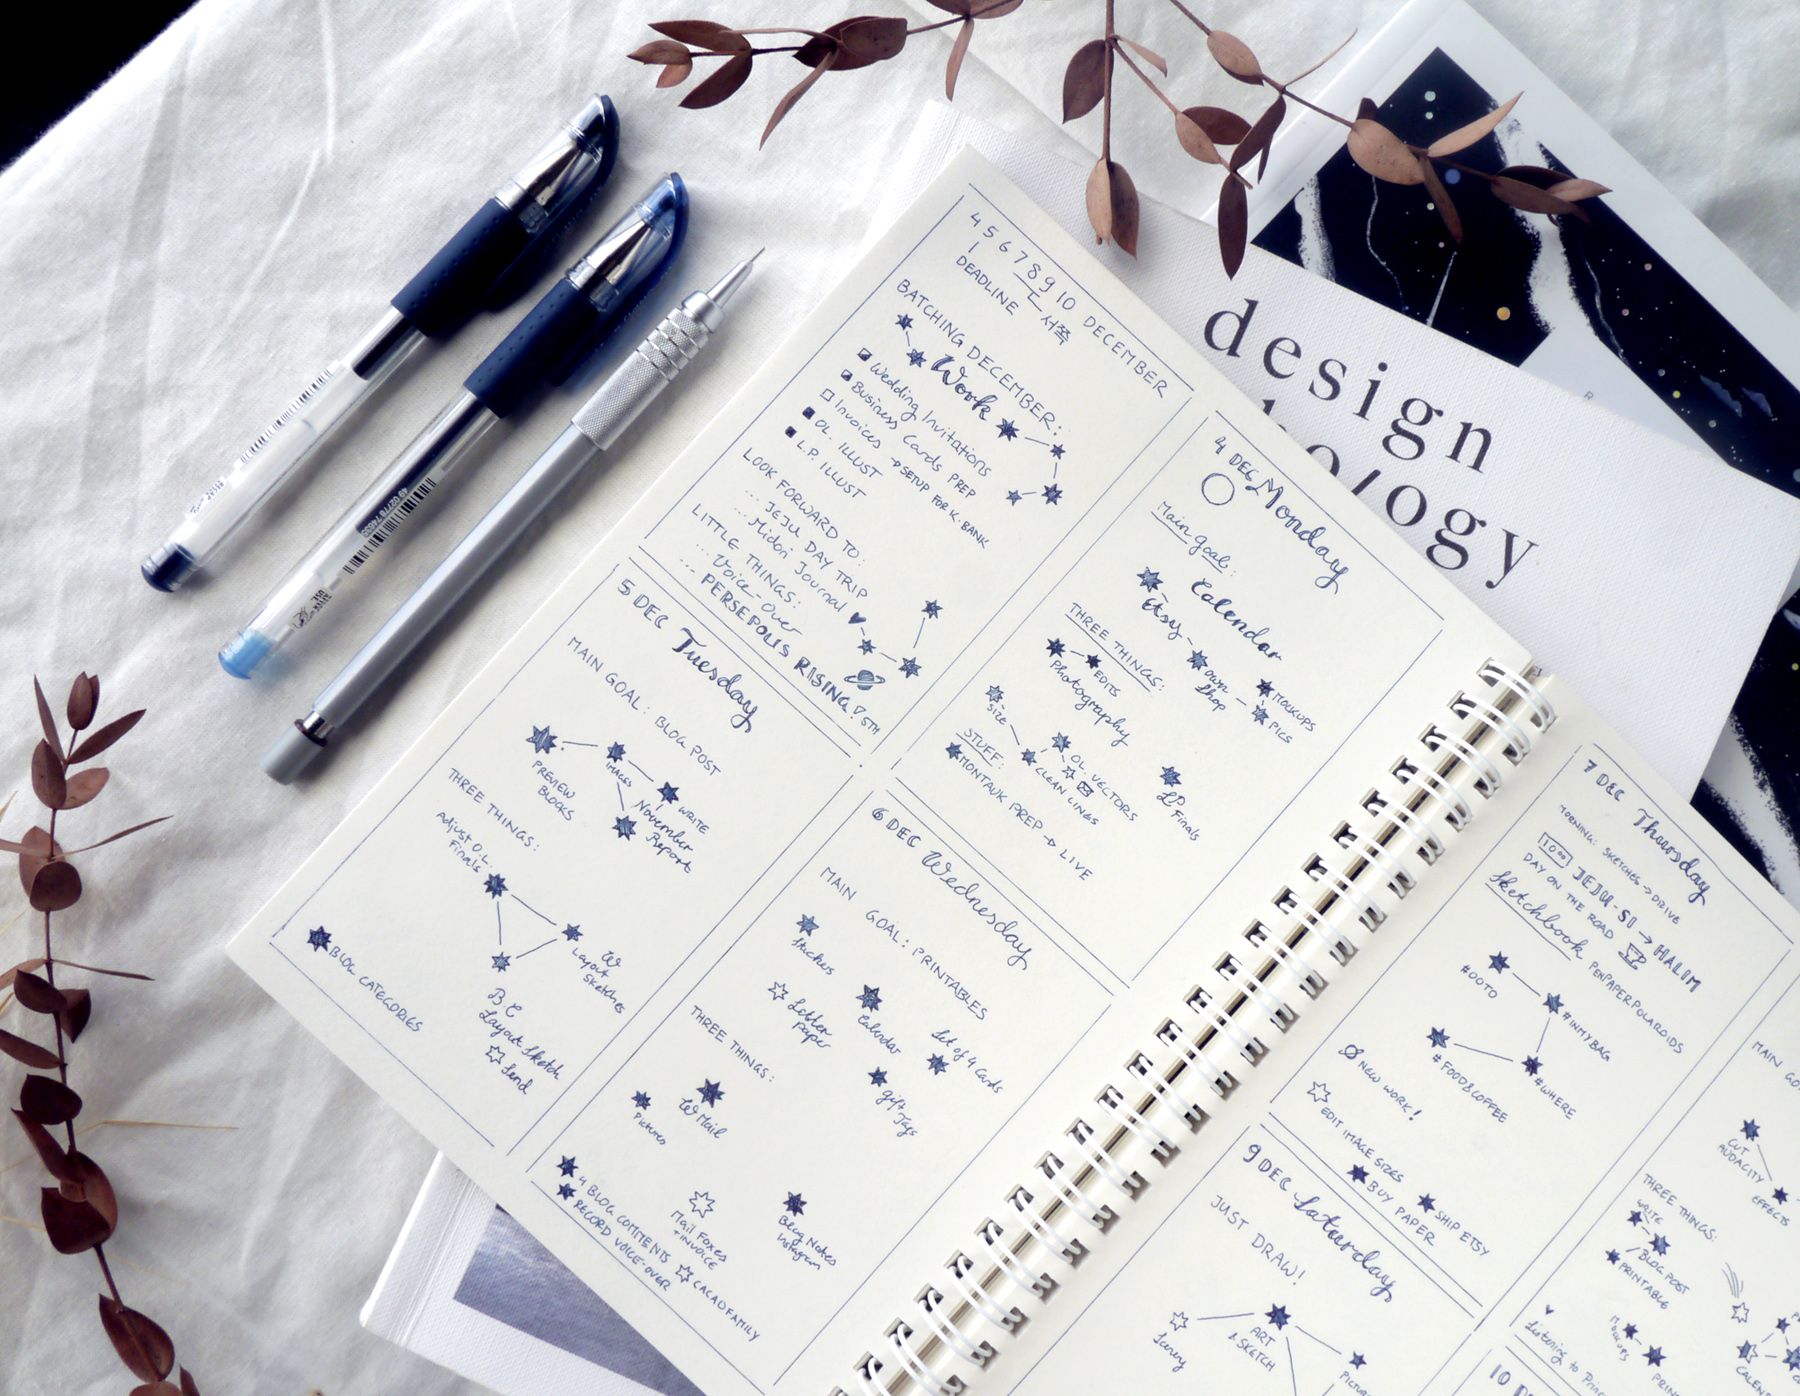 4 5 6 7 8 9 10 DECEMBER
DEADLINE
서쪽
BATCHING DECEMBER:
Work
Wedding Invitations
Business Cards PREP
Invoices → SETUP FOR K-BANK
OL. ILLUST
L.P. ILLUST
LOOK FORWARD TO:
... JEJU DAY TRIP
... Midori Journal
LITTLE THINGS:
... Voice-Over
... PERSEPOLIS RISING! 5TH
4 DEC Monday
Main goal:
Calendar
Etsy
own Shop
MOCKUPS
PICS
THREE THINGS:
EDITS
Photography
size
CLEAN LINES
OL. VECTORS
LP Finals
STUFF:
MONTAUK PREP → LIVE
5 DEC Tuesday
MAIN GOAL: BLOG POST
PREVIEW
BLOCKS
IMAGES
WRITE
November
Report
THREE THINGS:
Adjust O.L.
Finals
W
Layout
Sketches
B C
Layout Sketch
Send
BLOG CATEGORIES
6 DEC Wednesday
MAIN GOAL: PRINTABLES
Stickers
Letter
paper
Calendar
Set of 4 Cards
gift
Tags
THREE THINGS:
Pictures
W Mail
4 BLOG COMMENTS
RECORD VOICE-OVER
Mail Foxes
+ INVOICE
CACAOFAMILY
Blog Notes
Instagram
7 DEC Thursday
MORNING: SKETCHES → DRIVE
10:00 JEJU-SI → HALIM
DAY ON THE ROAD
Sketchbook PENPAPERPOLAROIDS
#OOTD
#INMYBAG
#FOOD&COFFEE
#WHERE
NEW WORK!
EDIT IMAGE SIZES
BUY PAPER
SHIP ETSY
9 DEC Saturday
JUST DRAW!
Scenery
ART
& SKETCH
MAIN
CUT
AUDACITY
EFFECTS
THREE THINGS:
WRITE
BLOG POST
PRINTABLE
Mockups
Listening to
10
design
ology